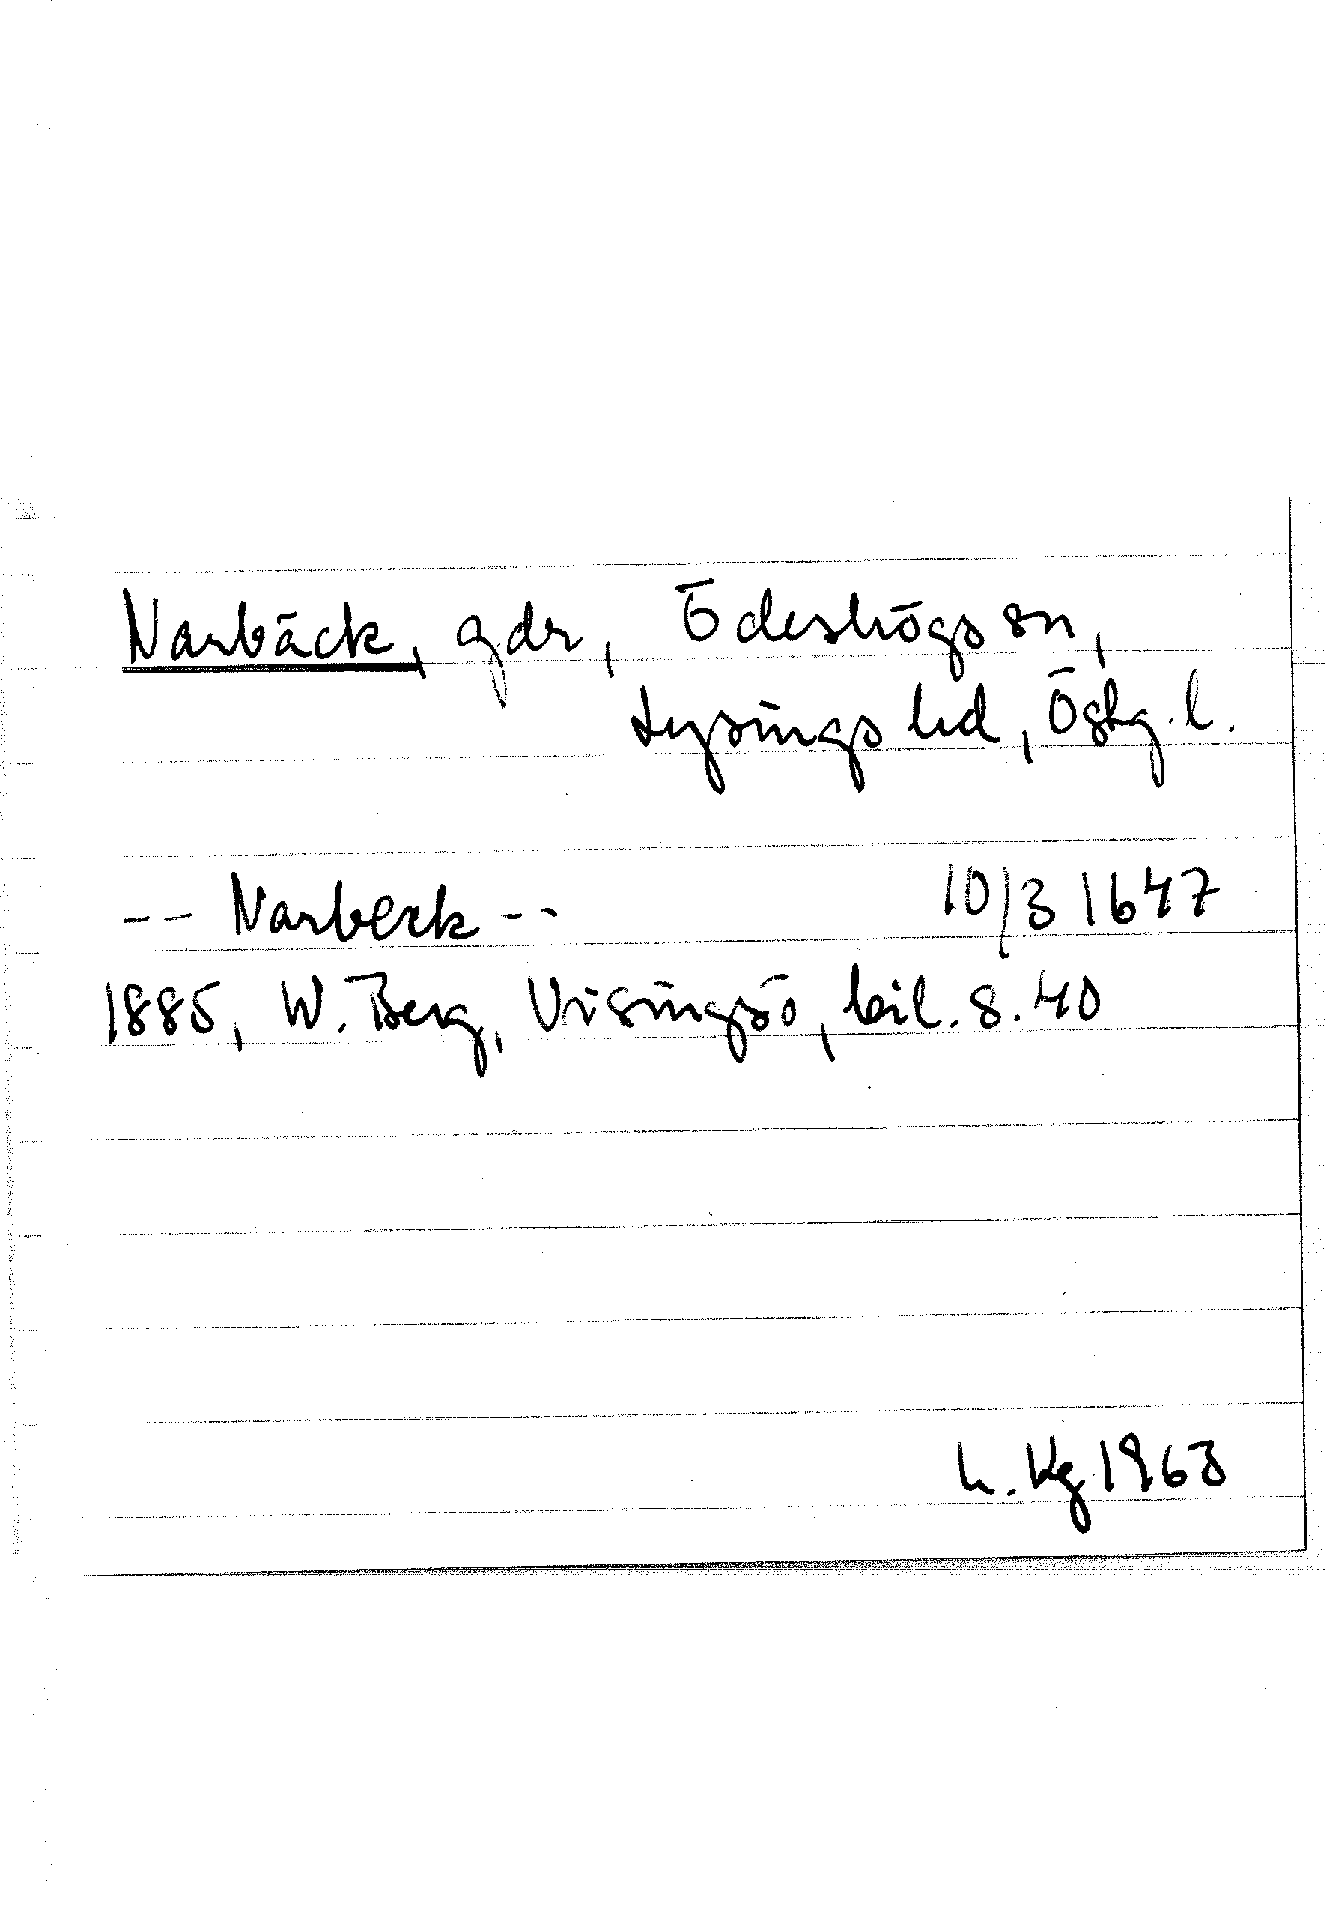 Narbäck, gdr, Ödeshögs sn,
Lysings hd, Östg. l.
-- Narbeck -- 10/3 1647
1885, W. Berg, Visingsö, bil. s. 40
h. Kg 1963